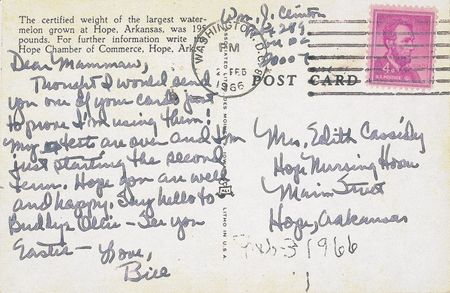 The certified weight of the largest water-
melon grown at Hope, Arkansas, was 195
pounds. For further information write
Hope Chamber of Commerce, Hope, Arkan
Dear Mammaw,
Thought I would send
you one of your cards just
to prove I'm using them!
My tests are over and I'm
just starting the second
term. Hope you are well
and happy. Say hello to
Buddy & Ollie - See you
Easter - Love,
Bill
Wm. J. Clinton
WASHINGTON, D.C.
PM
2 FEB
1966
POST CARD
4¢
Mrs. Edith Cassidy
Hope Nursing Home
Main Street
Hope, Arkansas
Feb-3 1966
LITHO IN U.S.A.